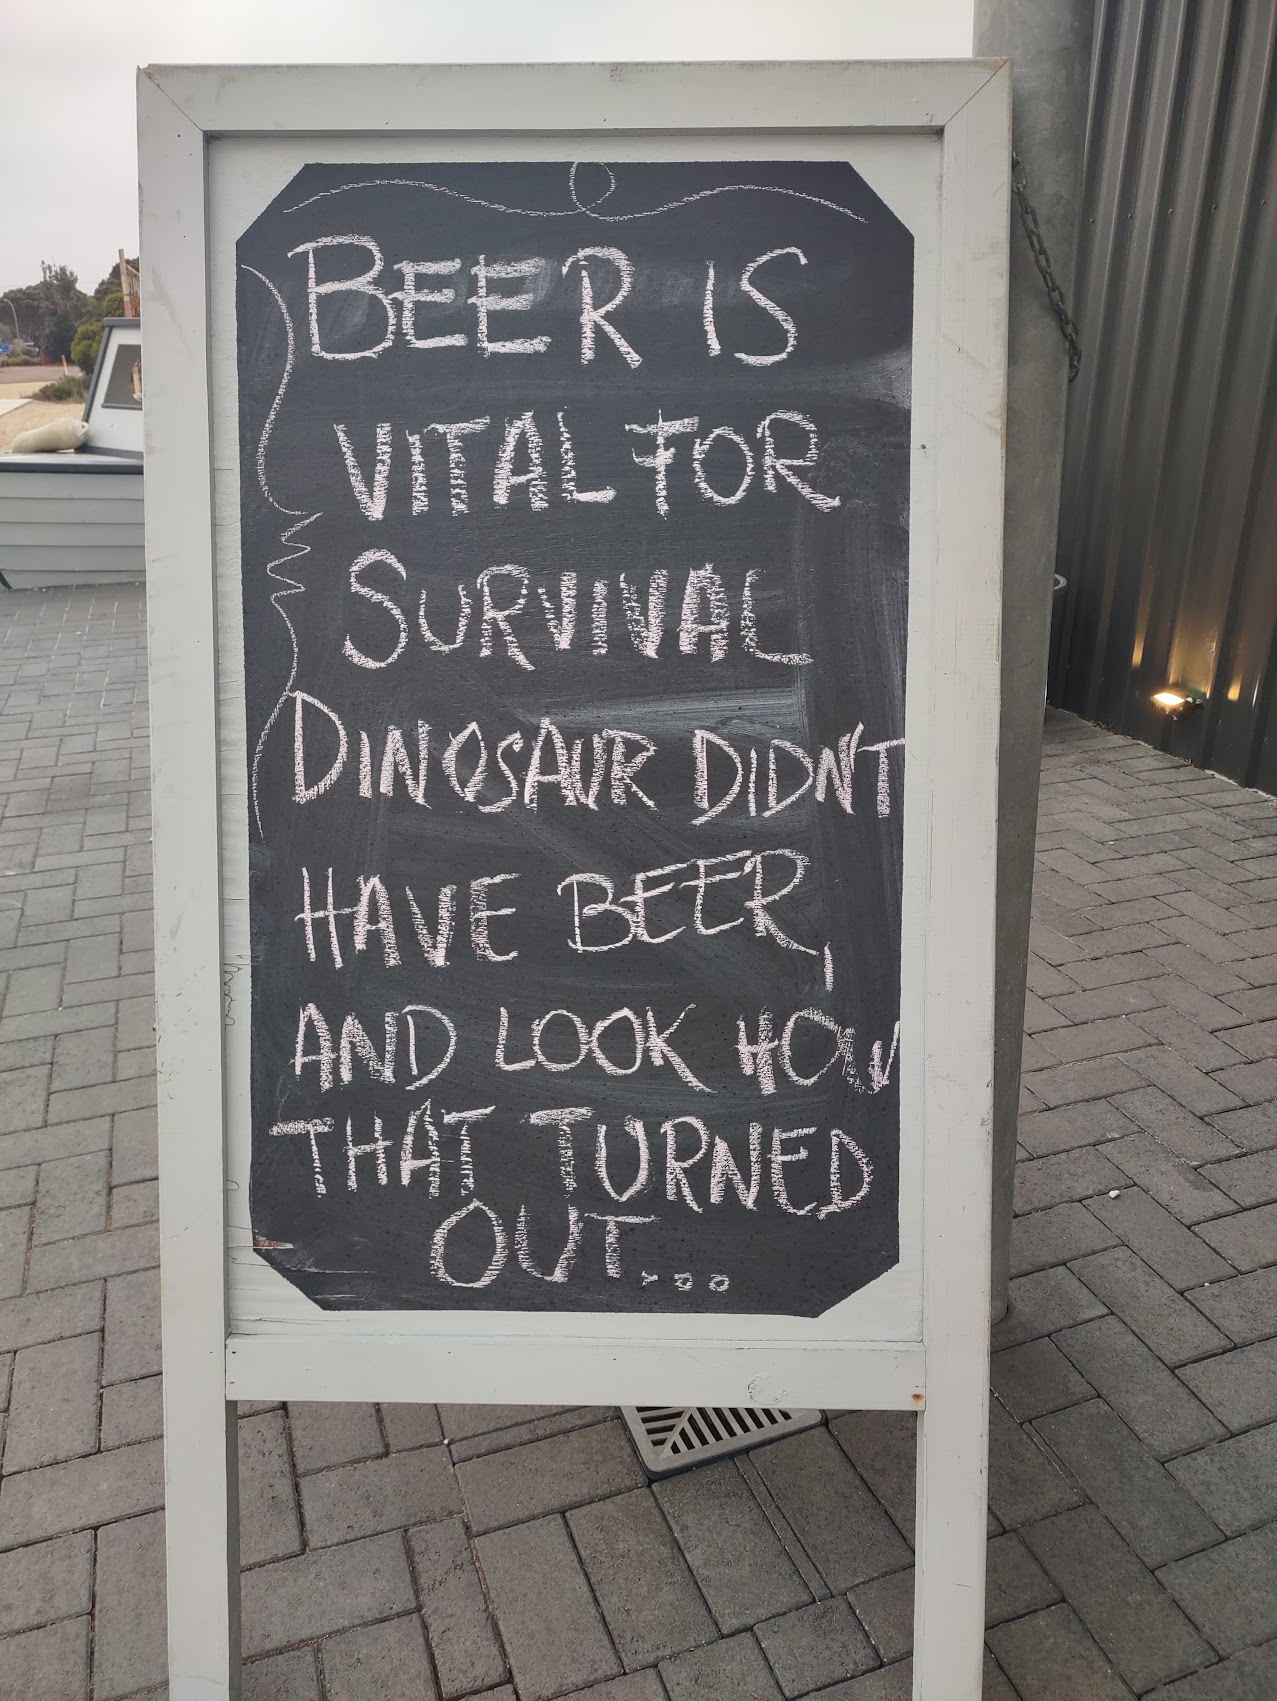 BEER IS
VITAL FOR
SURVIVAL
DINOSAUR DIDN'T
HAVE BEER,
AND LOOK HOW
THAT TURNED
OUT...